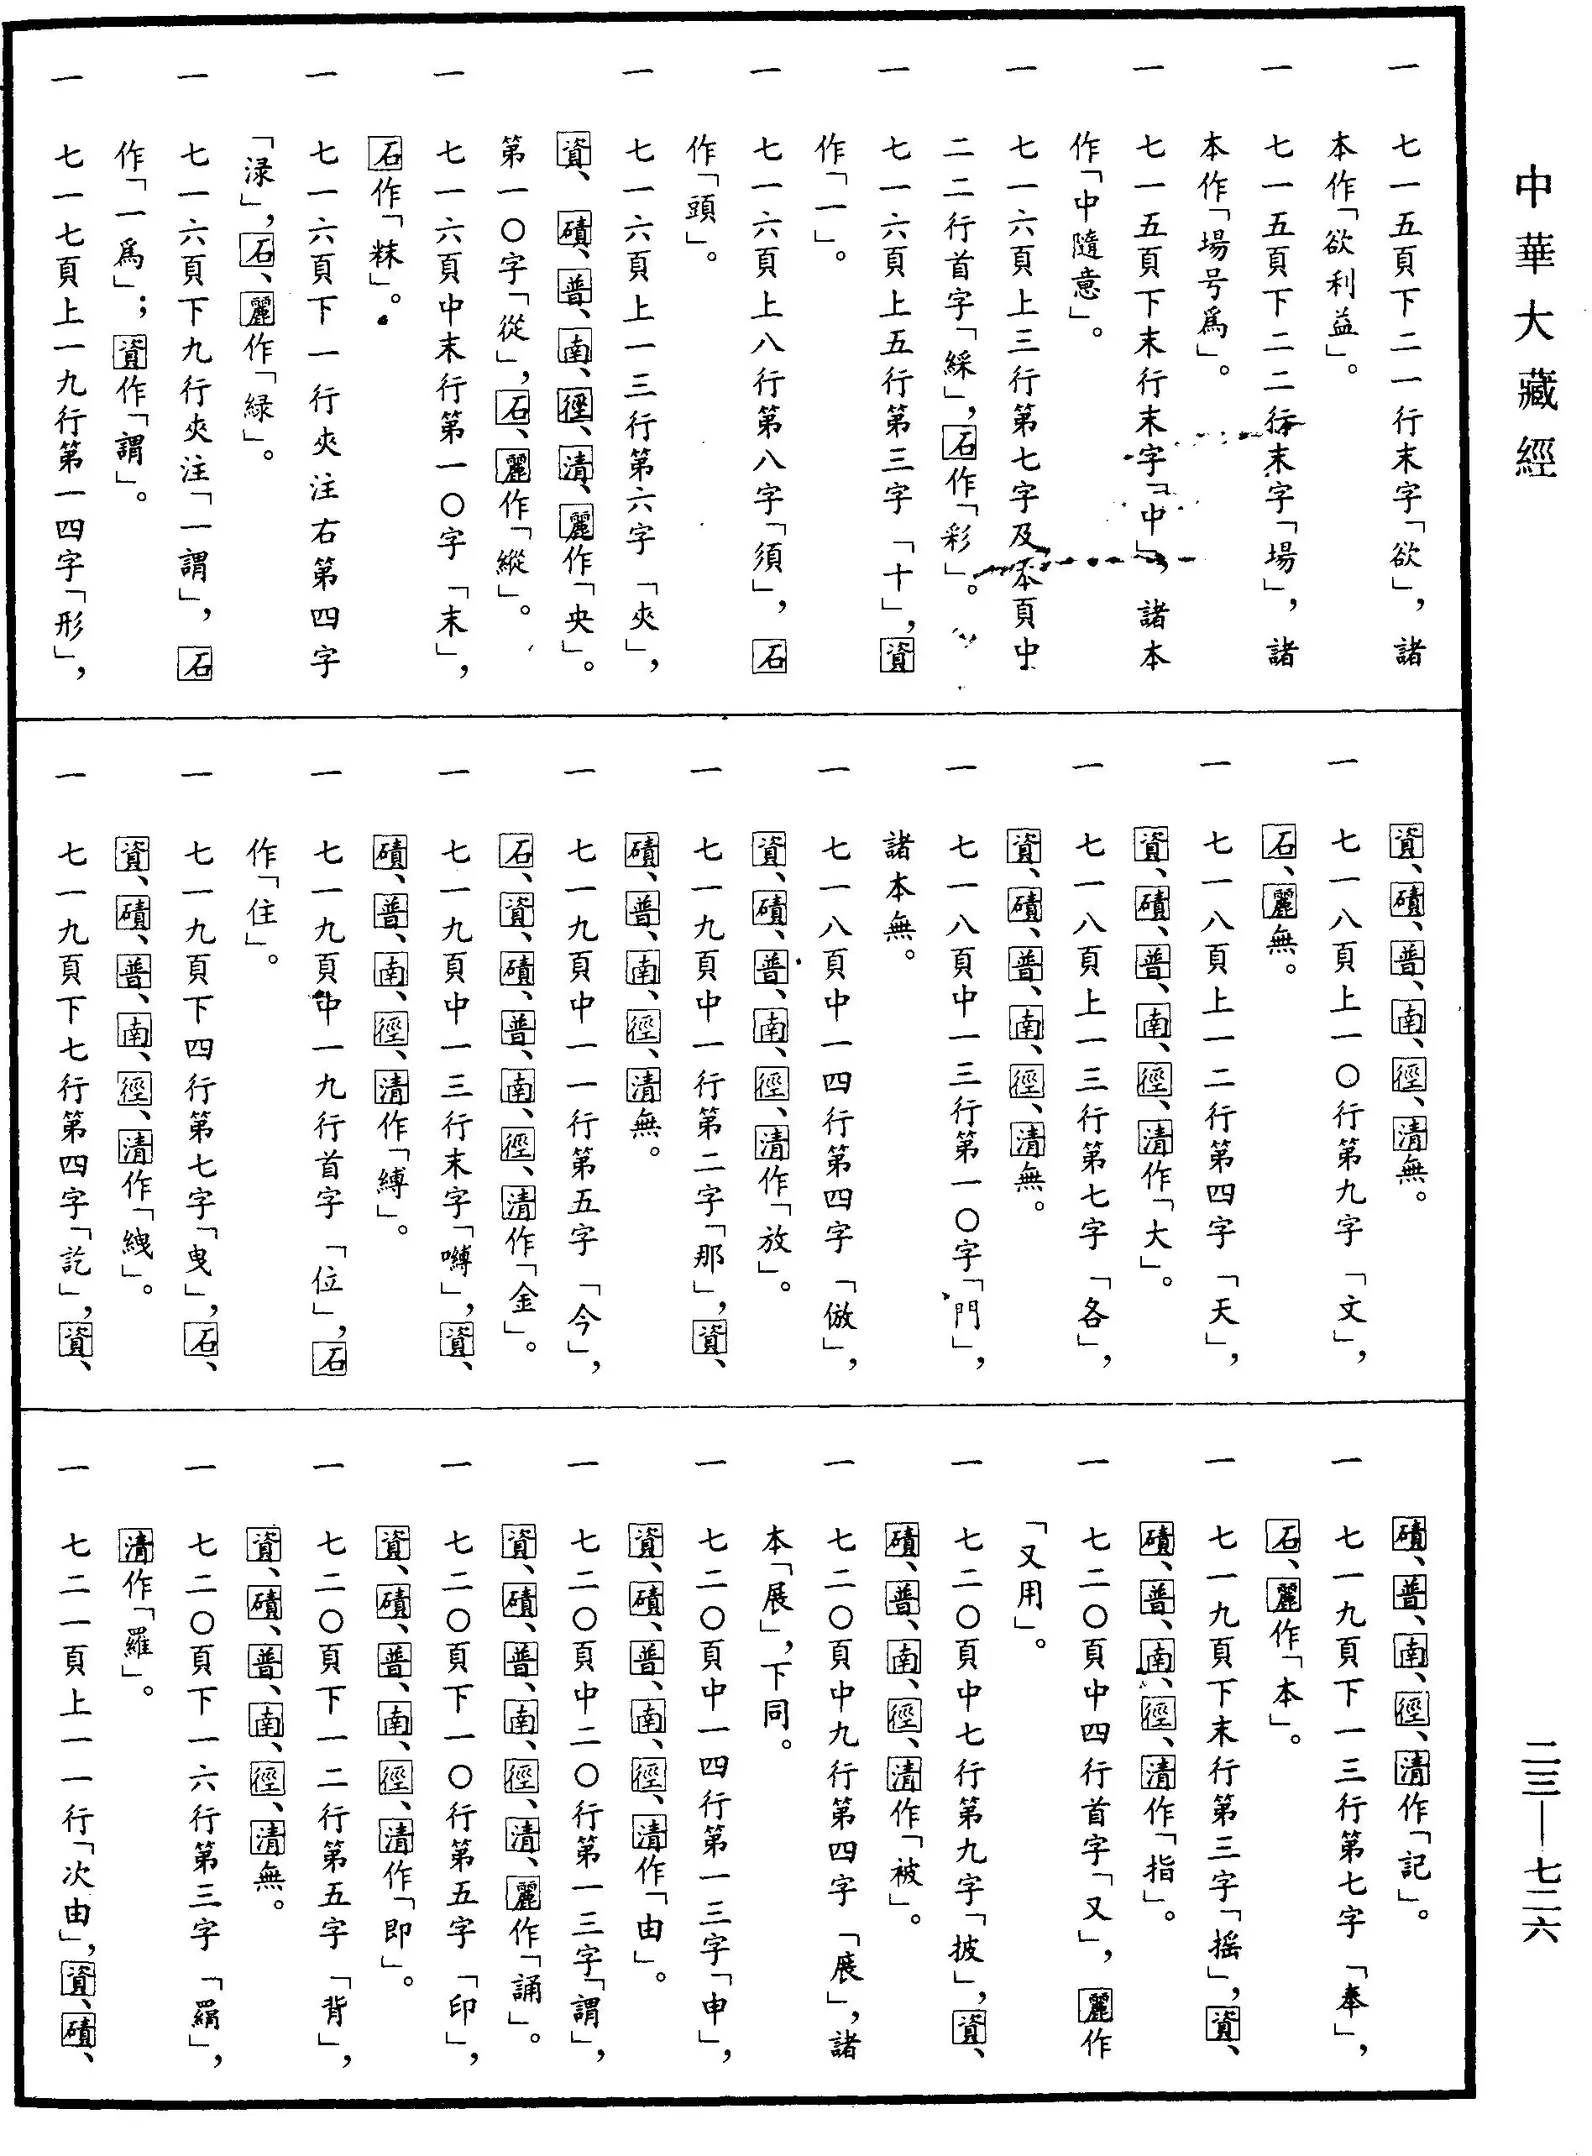 中華大藏經
一　七一五頁下二一行末字「欲」，諸
本作「欲利益」。
一　七一五頁下二二行末字「場」，諸
本作「場号爲」。
一　七一五頁下末行末字「中」，諸本
作「中隨意」。
一　七一六頁上三行第七字及本頁中
二二行首字「綵」，石作「彩」。
一　七一六頁上五行第三字「十」，資
作「一」。
一　七一六頁上八行第八字「須」，石
作「頭」。
一　七一六頁上一三行第六字「夾」，
資、磧、普、南、徑、清、麗作「央」。
第一〇字「從」，石、麗作「縱」。
一　七一六頁中末行第一〇字「末」，
石作「粖」。
一　七一六頁下一行夾注右第四字
「渌」，石、麗作「緑」。
一　七一六頁下九行夾注「一謂」，石
作「一爲」；資作「謂」。
一　七一七頁上一九行第一四字「形」，
資、磧、普、南、徑、清無。
一　七一八頁上一〇行第九字「文」，
石、麗無。
一　七一八頁上一二行第四字「天」，
資、磧、普、南、徑、清作「大」。
一　七一八頁上一三行第七字「各」，
資、磧、普、南、徑、清無。
一　七一八頁中一三行第一〇字「門」，
諸本無。
一　七一八頁中一四行第四字「倣」，
資、磧、普、南、徑、清作「放」。
一　七一九頁中一行第二字「那」，資、
磧、普、南、徑、清無。
一　七一九頁中一一行第五字「今」，
石、資、磧、普、南、徑、清作「金」。
一　七一九頁中一三行末字「嚩」，資、
磧、普、南、徑、清作「縛」。
一　七一九頁中一九行首字「位」，石
作「住」。
一　七一九頁下四行第七字「曳」，石、
資、磧、普、南、徑、清作「絏」。
一　七一九頁下七行第四字「訖」，資、
磧、普、南、徑、清作「記」。
一　七一九頁下一三行第七字「奉」，
石、麗作「本」。
一　七一九頁下末行第三字「摇」，資、
磧、普、南、徑、清作「指」。
一　七二〇頁中四行首字「又」，麗作
「又用」。
一　七二〇頁中七行第九字「披」，資、
磧、普、南、徑、清作「被」。
一　七二〇頁中九行第四字「展」，諸
本「展」，下同。
一　七二〇頁中一四行第一三字「申」，
資、磧、普、南、徑、清作「由」。
一　七二〇頁中二〇行第一三字「謂」，
資、磧、普、南、徑、清、麗作「誦」。
一　七二〇頁下一〇行第五字「印」，
資、磧、普、南、徑、清作「即」。
一　七二〇頁下一二行第五字「背」，
資、磧、普、南、徑、清無。
一　七二〇頁下一六行第三字「羂」，
清作「羅」。
一　七二一頁上一一行「次由」，資、磧、
二三—七二六